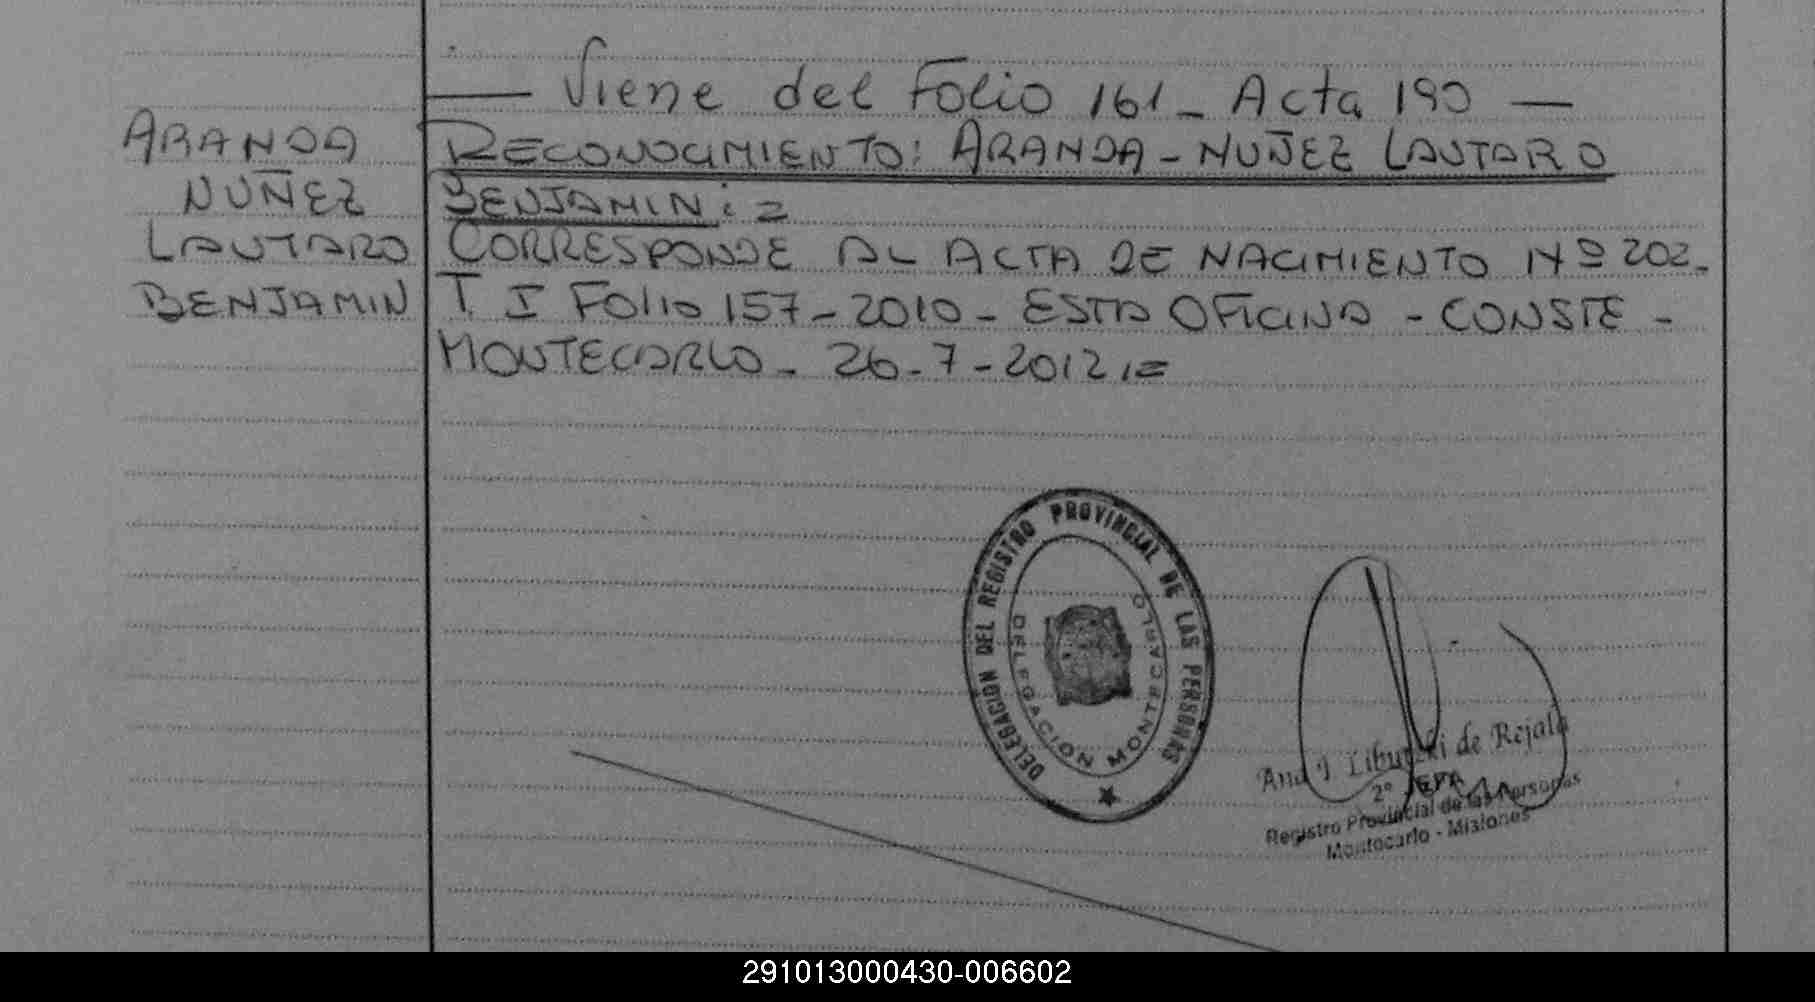 — Viene del Folio 161 - Acta 190 —
ARANDA
NUÑEZ
LAUTARO
BENJAMIN
RECONOCIMIENTO: ARANDA - NUÑEZ LAUTARO
BENJAMIN: =
CORRESPONDE AL ACTA DE NACIMIENTO Nº 202-
T. I FOLIO 157 - 2010 - ESTA OFICINA - CONSTE -
MONTECARLO - 26 - 7 - 2012 . =
DELEGACION DEL REGISTRO PROVINCIAL DE LAS PERSONAS
DELEGACION MONTECARLO
de Rejala
2º JEFA
Registro Provincial de las Personas
Montecarlo - Misiones
291013000430-006602